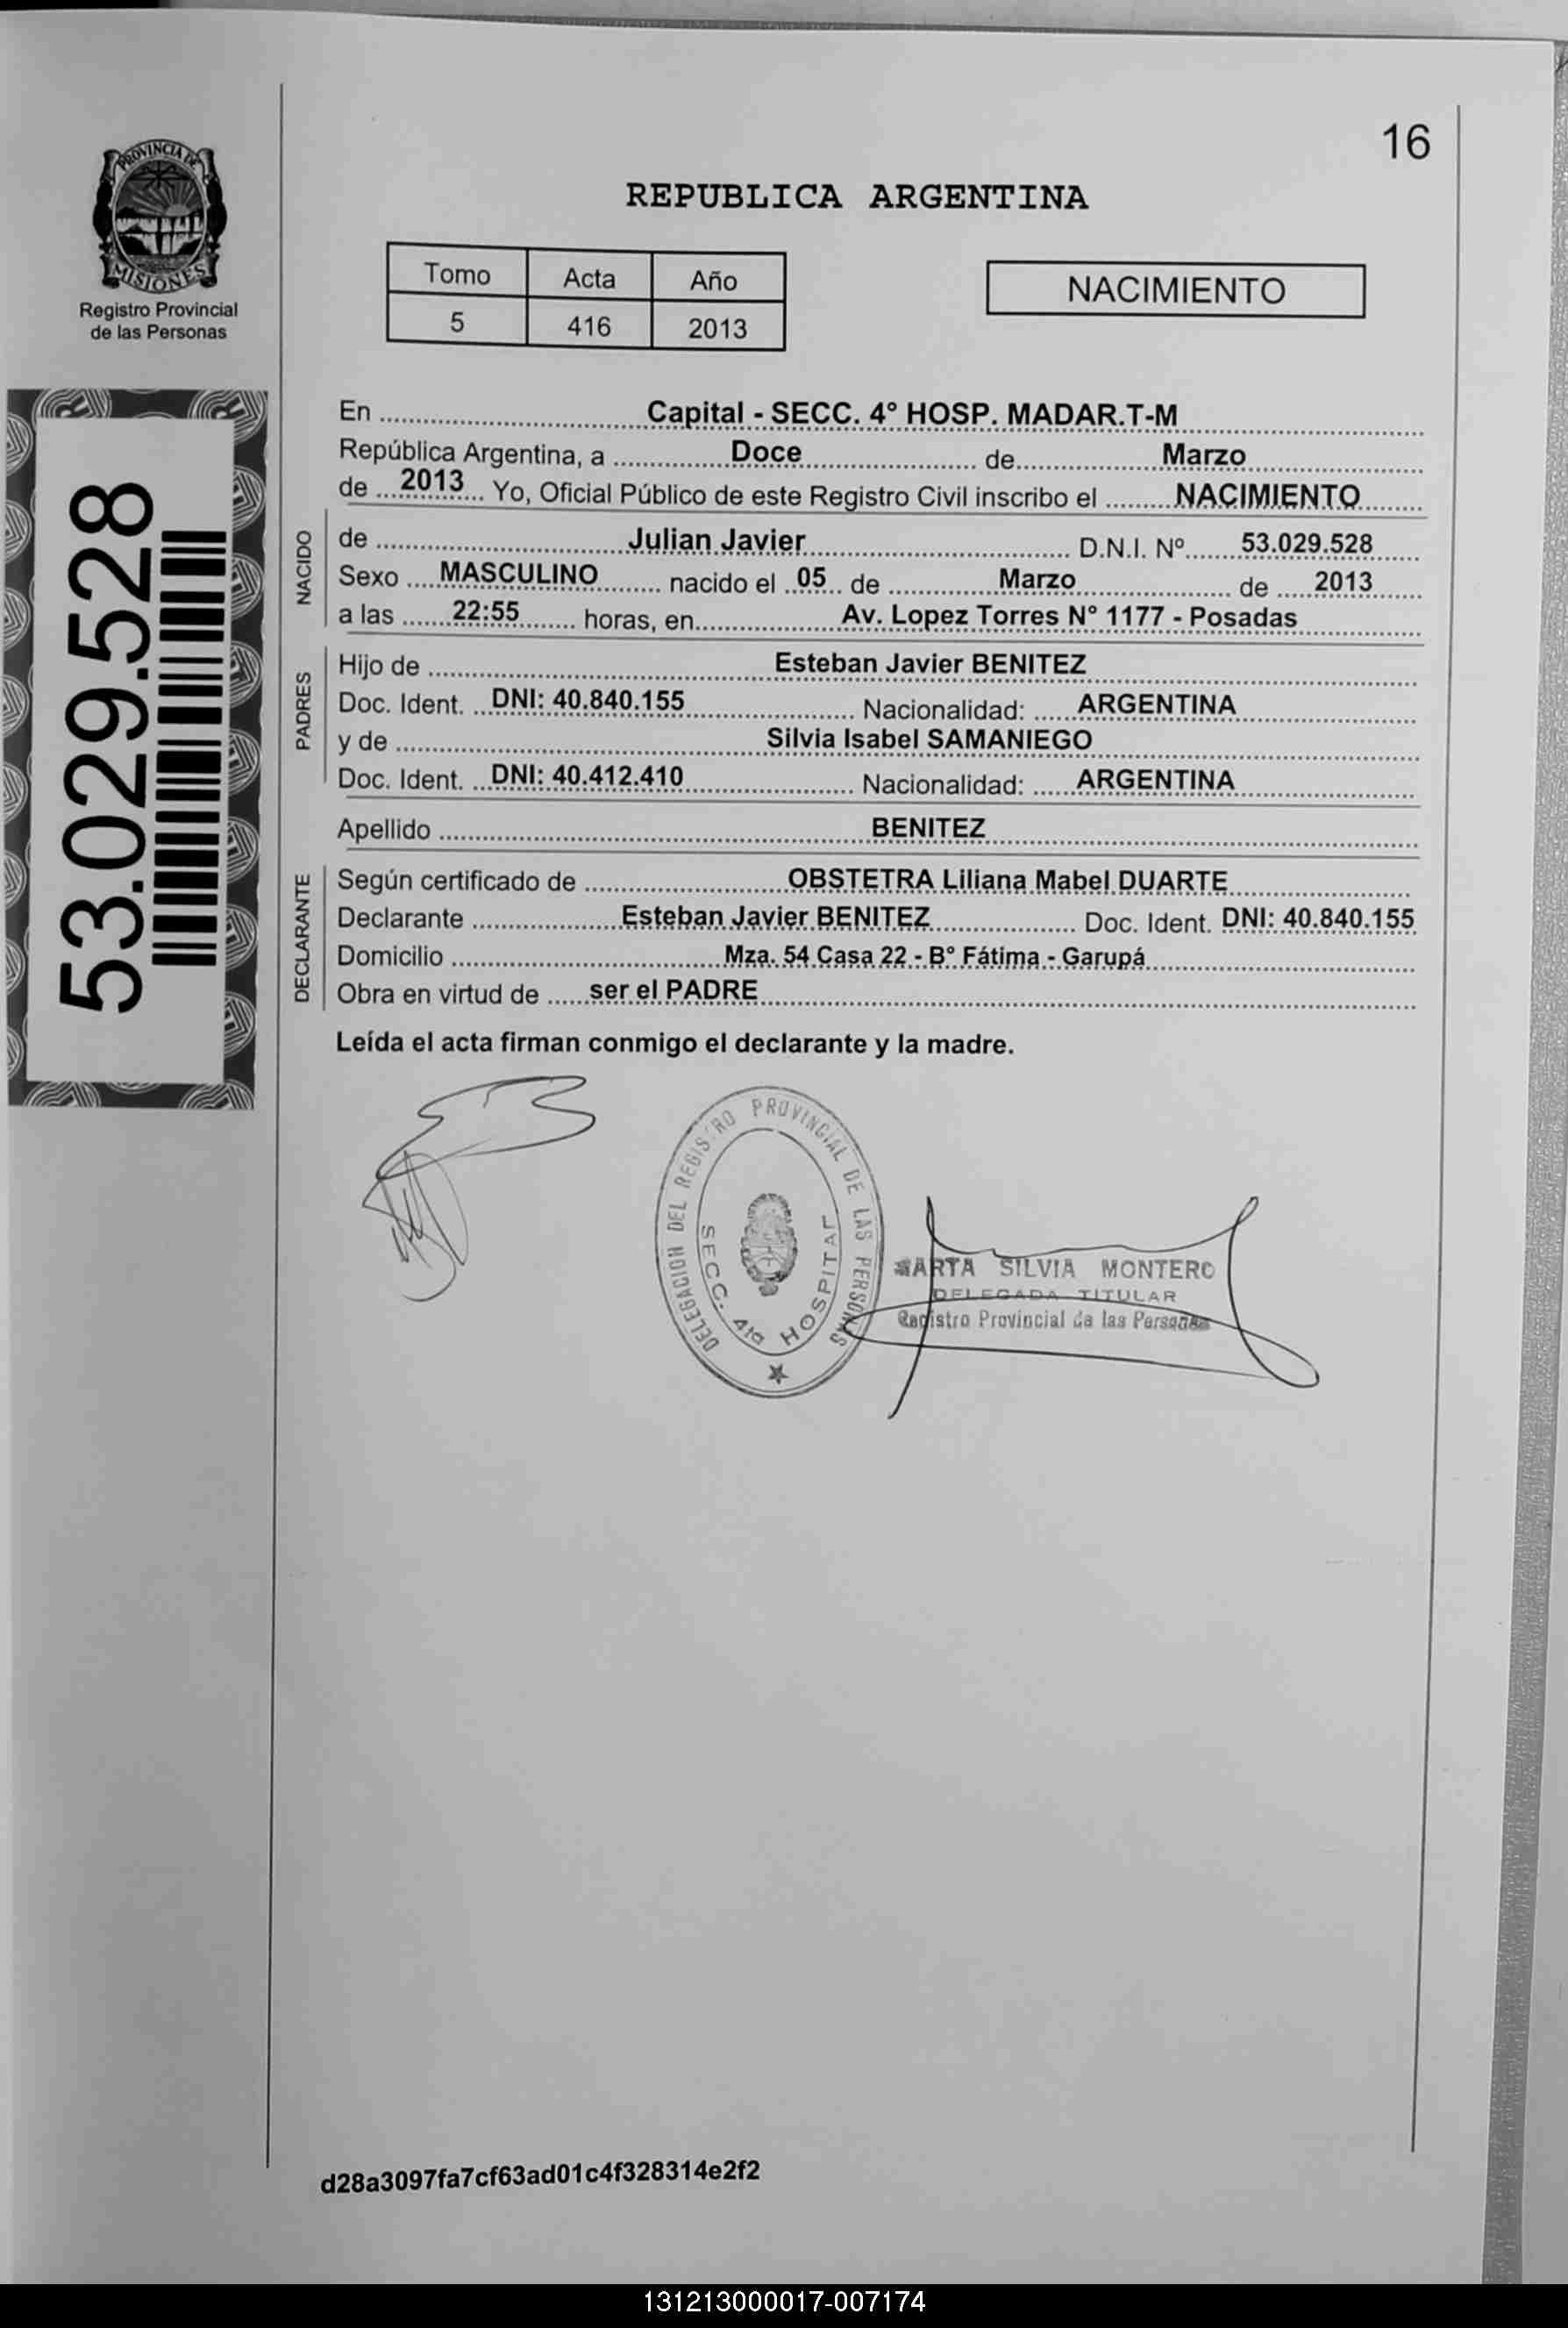 16
PROVINCIA DE
MISIONES
Registro Provincial
de las Personas
REPUBLICA ARGENTINA
Tomo Acta Año
5 416 2013
NACIMIENTO
53.029.528
En Capital - SECC. 4° HOSP. MADAR.T-M
República Argentina, a Doce de Marzo
de 2013 Yo, Oficial Público de este Registro Civil inscribo el NACIMIENTO
NACIDO
de Julian Javier D.N.I. Nº 53.029.528
Sexo MASCULINO nacido el 05 de Marzo de 2013
a las 22:55 horas, en Av. Lopez Torres N° 1177 - Posadas
PADRES
Hijo de Esteban Javier BENITEZ
Doc. Ident. DNI: 40.840.155 Nacionalidad: ARGENTINA
y de Silvia Isabel SAMANIEGO
Doc. Ident. DNI: 40.412.410 Nacionalidad: ARGENTINA
Apellido BENITEZ
DECLARANTE
Según certificado de OBSTETRA Liliana Mabel DUARTE
Declarante Esteban Javier BENITEZ Doc. Ident. DNI: 40.840.155
Domicilio Mza. 54 Casa 22 - B° Fátima - Garupá
Obra en virtud de ser el PADRE
Leída el acta firman conmigo el declarante y la madre.
DELEGACION DEL REGISTRO PROVINCIAL DE LAS PERSONAS
SECC. 4ta HOSPITAL
MARTA SILVIA MONTERO
DELEGADA TITULAR
Registro Provincial de las Personas
d28a3097fa7cf63ad01c4f328314e2f2
131213000017-007174